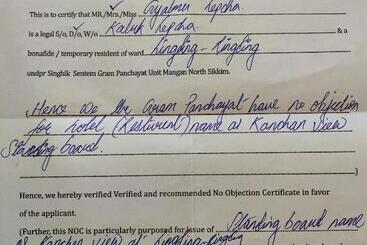 This is to certify that MR./Mrs./Miss Gyalmu Lepcha.
is a legal S/o, D/o, W/o Kaluk Lepcha. & a
bonafide / temporary resident of ward Lingding - Lingding
undpr Singhik Sentem Gram Panchayat Unit Mangan North Sikkim.
Hence we the Gram Panchayat have no objection
for hotel (Resturent) name as Kanchan View
Standing board.
)
Hence, we hereby verified Verified and recommended No Objection Certificate in favor
of the applicant.
(Further, this NOC is particularly purposed for issue of Standing board name
as Kanchan View at Lingding-Lingding